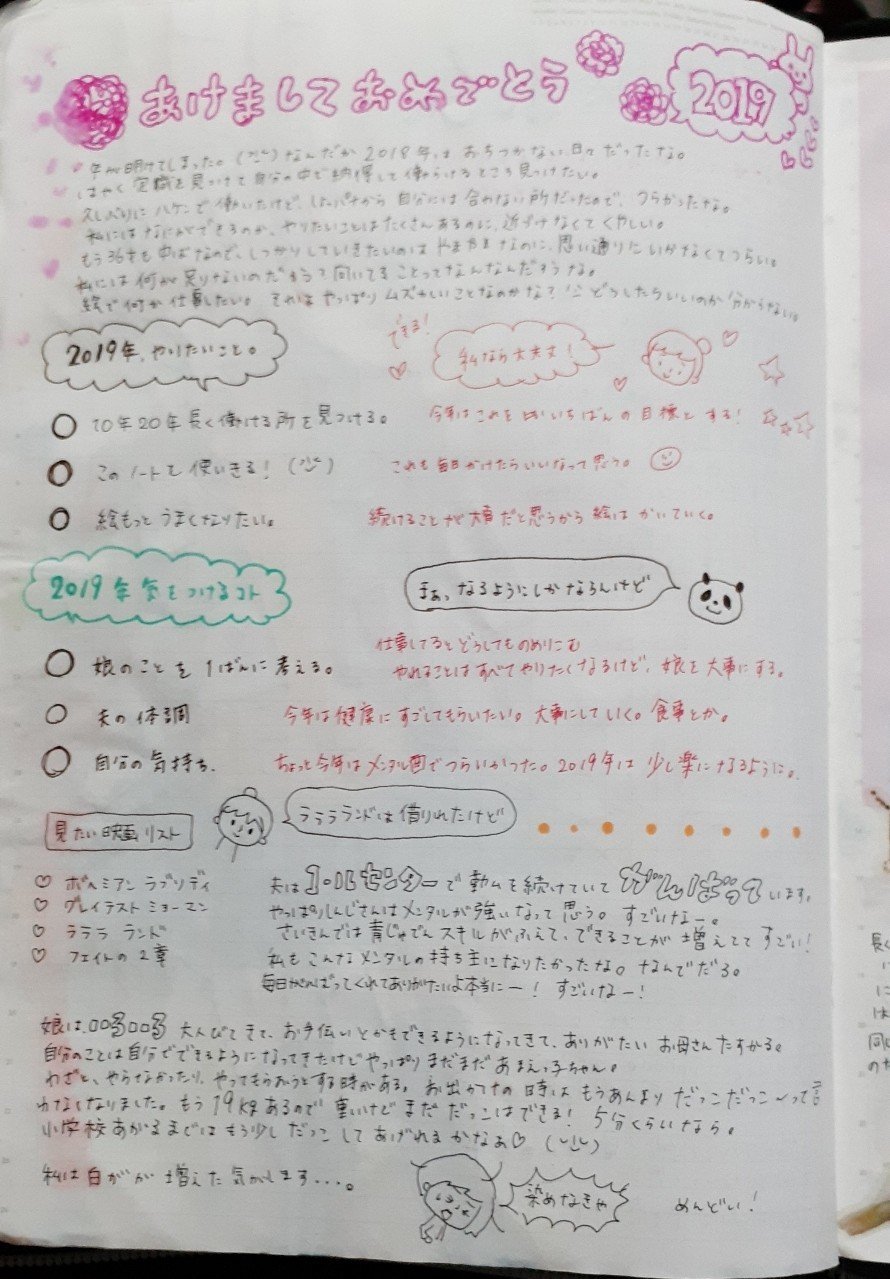 あけましておめでとう
2019
年が明けてしまった。なんだか2018年は おちつかない日々だったな。
はやく定職を見つけて自分の中で納得して働らけるところ見つけたい。
久しぶりにハケンで働いたけど、したパナから 自分には合わない所だったので、つらかったな。
私にはなにができるのか、やりたいことはたくさんあるのに、近づけなくてくやしい。
もう36才も中ばなので、しっかりしていきたいのは やまやまなのに、思い通りにいかなくてつらい。
私には何が足りないのだろう?向いてることってなんなんだろうな。
絵で何か仕事したい。それはやっぱりムズカしいことなのかな?どうしたらいいのか分からない。
2019年、やりたいこと。
できる!
私なら大丈夫!
○ 10年20年長く働ける所を見つける。 今年はこれを いちばんの目標とする!
○ このノートを使いきる! これも毎日かけたらいいなって思う。
○ 絵もっとうまくなりたい。 続けることが大事だと思うから絵はかいていく。
2019年気をつけるコト
まぁ、なるようにしかならんけど
仕事してるとどうしてものめりこむ
○ 娘のことを1ばんに考える。 やれることはすべてやりたくなるけど、娘を大事にする。
○ 夫の体調 今年は健康にすごしてもらいたい。大事にしていく。食事とか。
○ 自分の気持ち、 ちょっと今年はメンタル面でつらいかった。2019年は少し楽になるように。
見たい映画リスト
ラララランドは借りれたけど
♡ ボヘミアンラプソディ
♡ グレイテストショーマン
♡ ラララランド
♡ フェイトの2章
夫はコールセンターで勤ムを続けていてがんばっています。
やっぱりしんじさんはメンタルが強いなって思う。すごいなー。
さいきんでは青じゃでんスキルがふえて、できることが増えててすごい!
私もこんなメンタルの持ち主になりたかったな。なんでだろ。
毎日がんばってくれてありがたいよ本当にー!すごいなー!
娘は、 大人びてきて、お手伝いとかもできるようになってきて、ありがたい お母さんたすかる。
自分のことは自分でできるようになってきたけどやっぱりまだまだあまえっ子ちゃん。
わざと、やらなかったり、やってもらおうとする時がある。お出かけの時はもうあんまりだっこだっこ〜って言
わなくなりました。もう19kgあるので重いけどまだだっこはできる!5分くらいなら。
小学校あがるまでにはもう少しだっこしてあげれるかなぁ♡
私は白がが増えた気がします・・・。
染めなきゃ
めんどい!